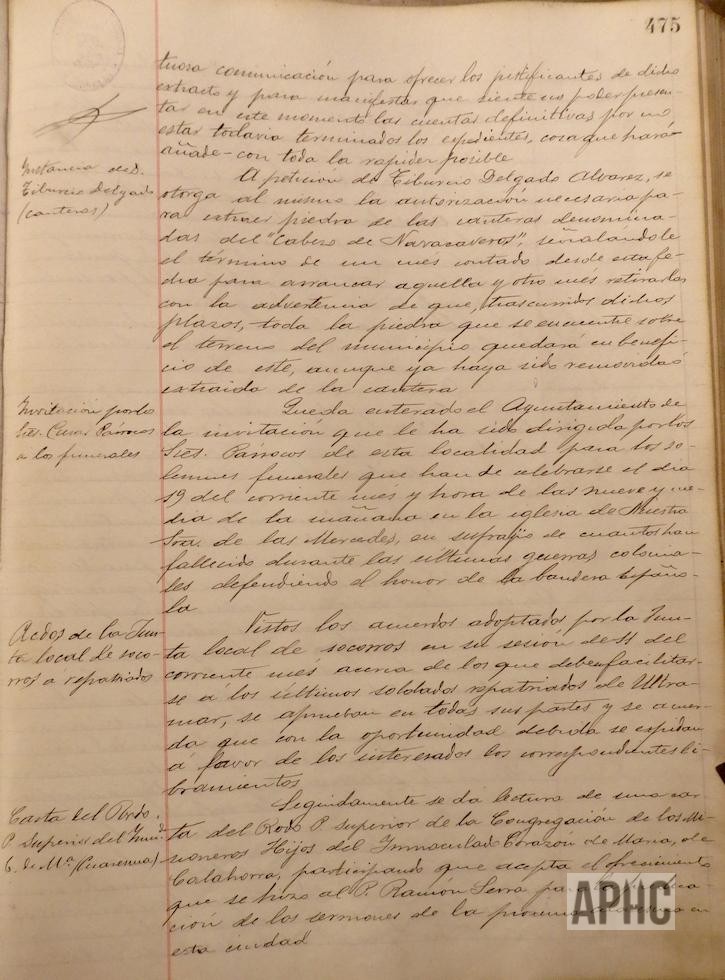 475
tuosa comunicación para ofrecer los justificantes de dicho
extracto y para manifestar que siente no poder presen-
tar en este momento las cuentas definitivas por no
estar todavia terminados los expedientes, cosa que hará-
añade- con toda la rapidez posible
Instancia de D.
Tiburcio Delgado
(canteras)
A petición de Tiburcio Delgado Alvarez, se
otorga al mismo la autorización necesaria pa-
ra extraer piedra de las canteras denomina-
das del "Cabezo de Navacaveros", señalándole
el término de un mes contado desde esta fe-
cha para arrancar aquella y otro mes retirarla
con la advertencia de que, trascurridos dichos
plazos, toda la piedra que se encuentre sobre
el terreno del municipio quedará en benefi-
cio de este, aunque ya haya sido removida ó
extraida de la cantera
Invitación por los
Sres. Curas Párrocos
a los funerales
Queda enterado el Ayuntamiento de
la invitación que le ha sido dirigida por los
Sres. Párrocos de esta localidad para los so-
lemnes funerales que han de celebrarse el dia
19 del corriente mes y hora de las nueve y me-
dia de la mañana en la iglesia de Nuestra
Sra. de las Mercedes, en sufragio de cuantos han
fallecido durante las últimas guerras colonia-
les defendiendo el honor de la bandera Españo-
la
Acdos de la Jun-
ta local de soco-
rros a repatriados
Vistos los acuerdos adoptados por la Jun-
ta local de socorros en su sesión de 11 del
corriente mes acerca de los que deben facilitar-
se a los últimos soldados repatriados de Ultra-
mar, se aprueban en todas sus partes y se acuer-
da que con la oportunidad debida se expidan
á favor de los interesados los correspondientes li-
bramientos
Carta del Rvdo.
P. Superior del Inmdo
C. de Mª (Cuaresma)
Seguidamente se da lectura de una car-
ta del Rvdo P. Superior de la Congregación de los Mi-
sioneros Hijos del Inmaculado Corazón de Maria, de
Calahorra, participando que acepta el ofrecimiento
que se hizo al P. Ramón Serra para la
ción de los sermones de la proxima cuaresma en
esta ciudad
APHC